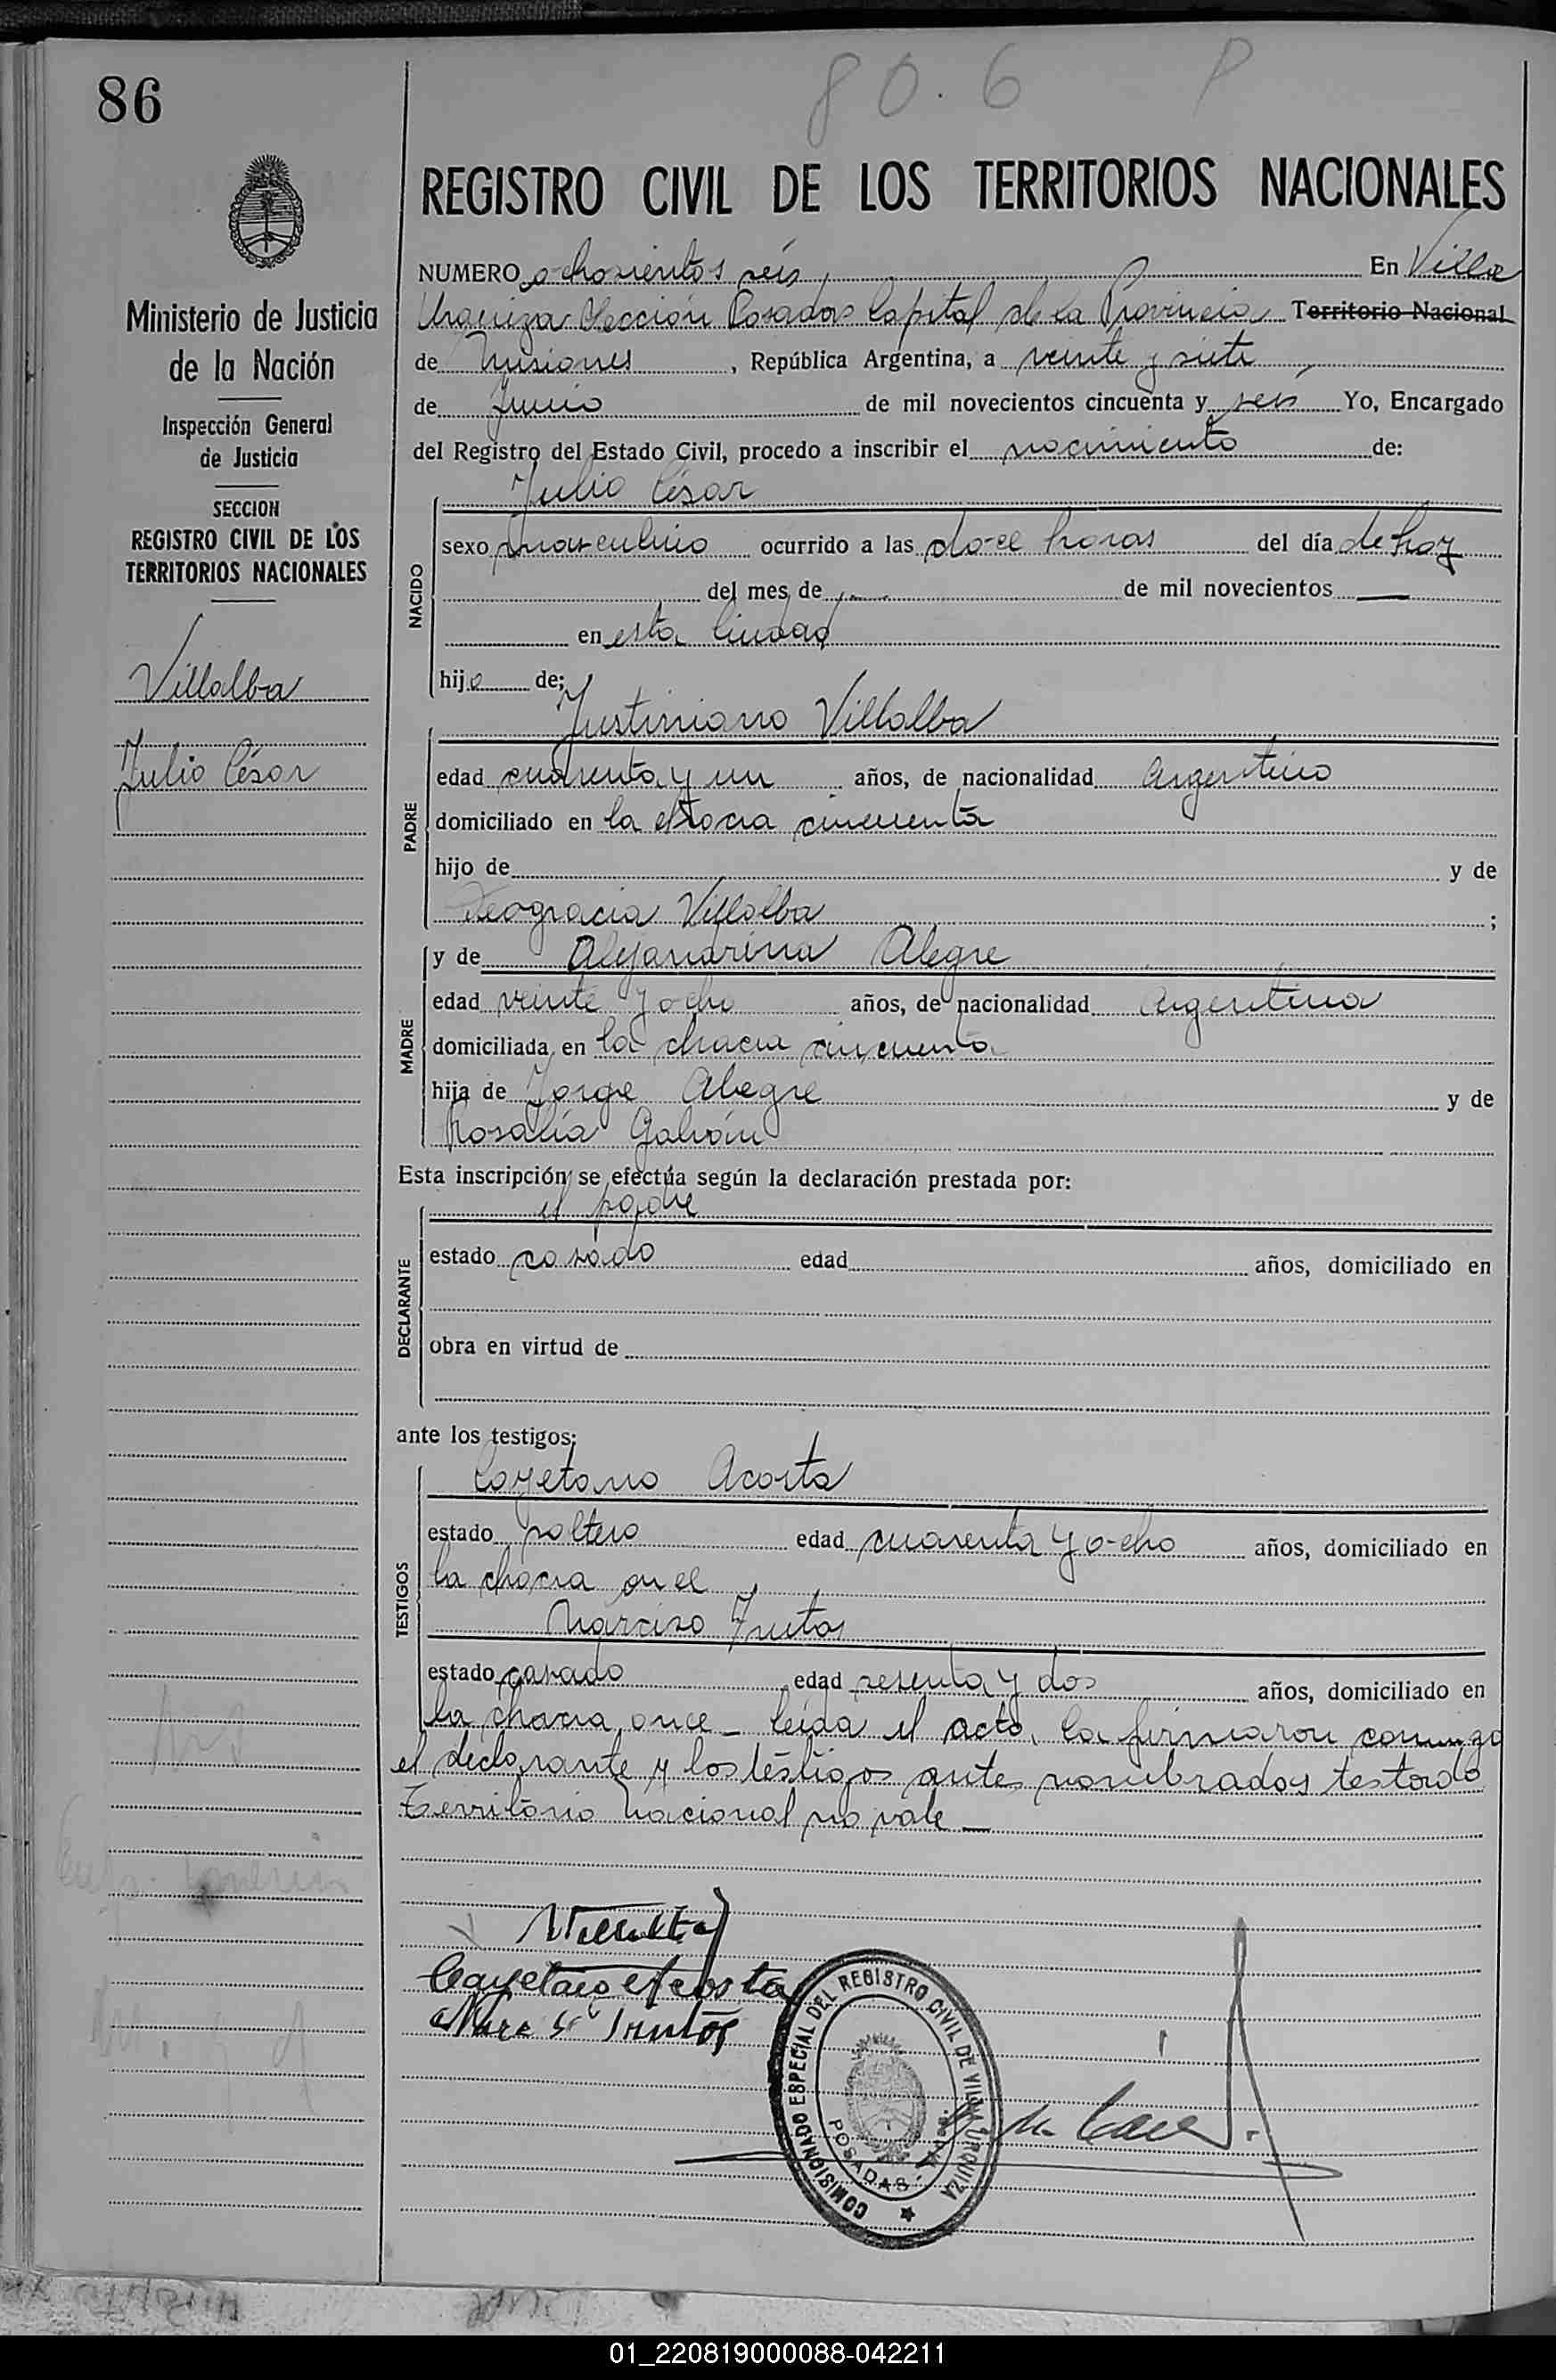 80.6 P
86
REGISTRO CIVIL DE LOS TERRITORIOS NACIONALES
Ministerio de Justicia
de la Nación
Inspección General
de Justicia
SECCION
REGISTRO CIVIL DE LOS
TERRITORIOS NACIONALES
Villalba
Julio César
NUMERO ochocientos seis, En Villa
Urquiza Sección Posadas Capital de la Provincia Territorio Nacional
de Misiones, República Argentina, a veinte y siete
de Junio de mil novecientos cincuenta y seis Yo, Encargado
del Registro del Estado Civil, procedo a inscribir el nacimiento de:
Julio César
NACIDO
sexo masculino ocurrido a las doce horas del día de hoy
del mes de de mil novecientos —
en esta Ciudad
hijo de:
Justiniano Villalba
PADRE
edad cuarenta y un años, de nacionalidad Argentino
domiciliado en la chacra cincuenta
hijo de y de
Deogracia Villalba ;
MADRE
y de Alejandrina Alegre
edad veinte y ocho años, de nacionalidad Argentina
domiciliada en la chacra cincuenta
hija de Jorge Alegre y de
Rosalía Galván
Esta inscripción se efectúa según la declaración prestada por:
el padre
DECLARANTE
estado casado edad años, domiciliado en
obra en virtud de
ante los testigos:
Cayetano Acosta
TESTIGOS
estado soltero edad cuarenta y ocho años, domiciliado en
la chacra
Narciso Frutos
estado casado edad sesenta y dos años, domiciliado en
la chacra once — leída el acta, la firmaron conmigo
el declarante y los testigos antes nombrados testado
Territorio Nacional no vale —
JVillalba
Cayetano Acosta
Narciso Frutos
COMISIONADO ESPECIAL DEL REGISTRO CIVIL DE VILLA URQUIZA
POSADAS
01_220819000088-042211